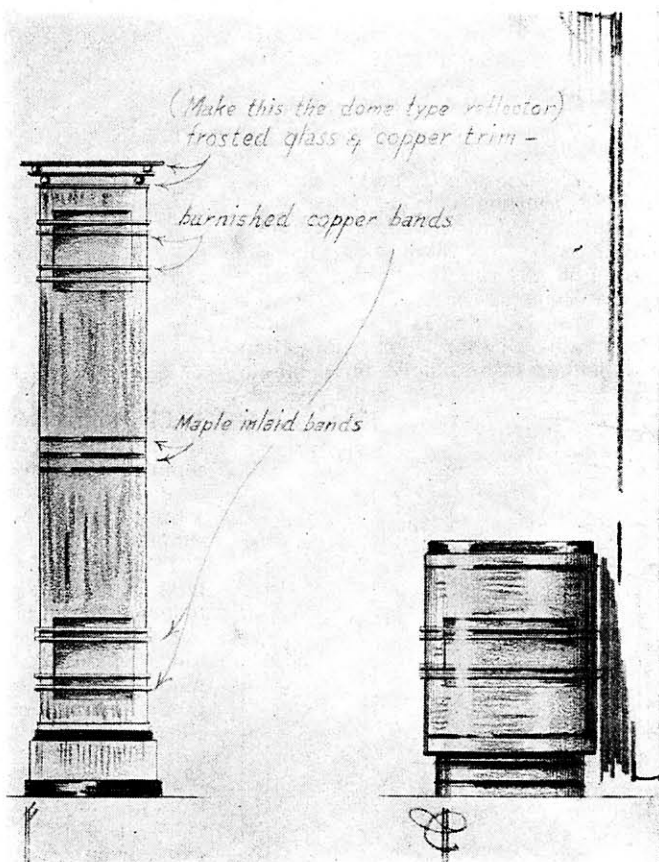 (Make this the dome type reflector)
frosted glass & copper trim -
burnished copper bands
Maple inlaid bands